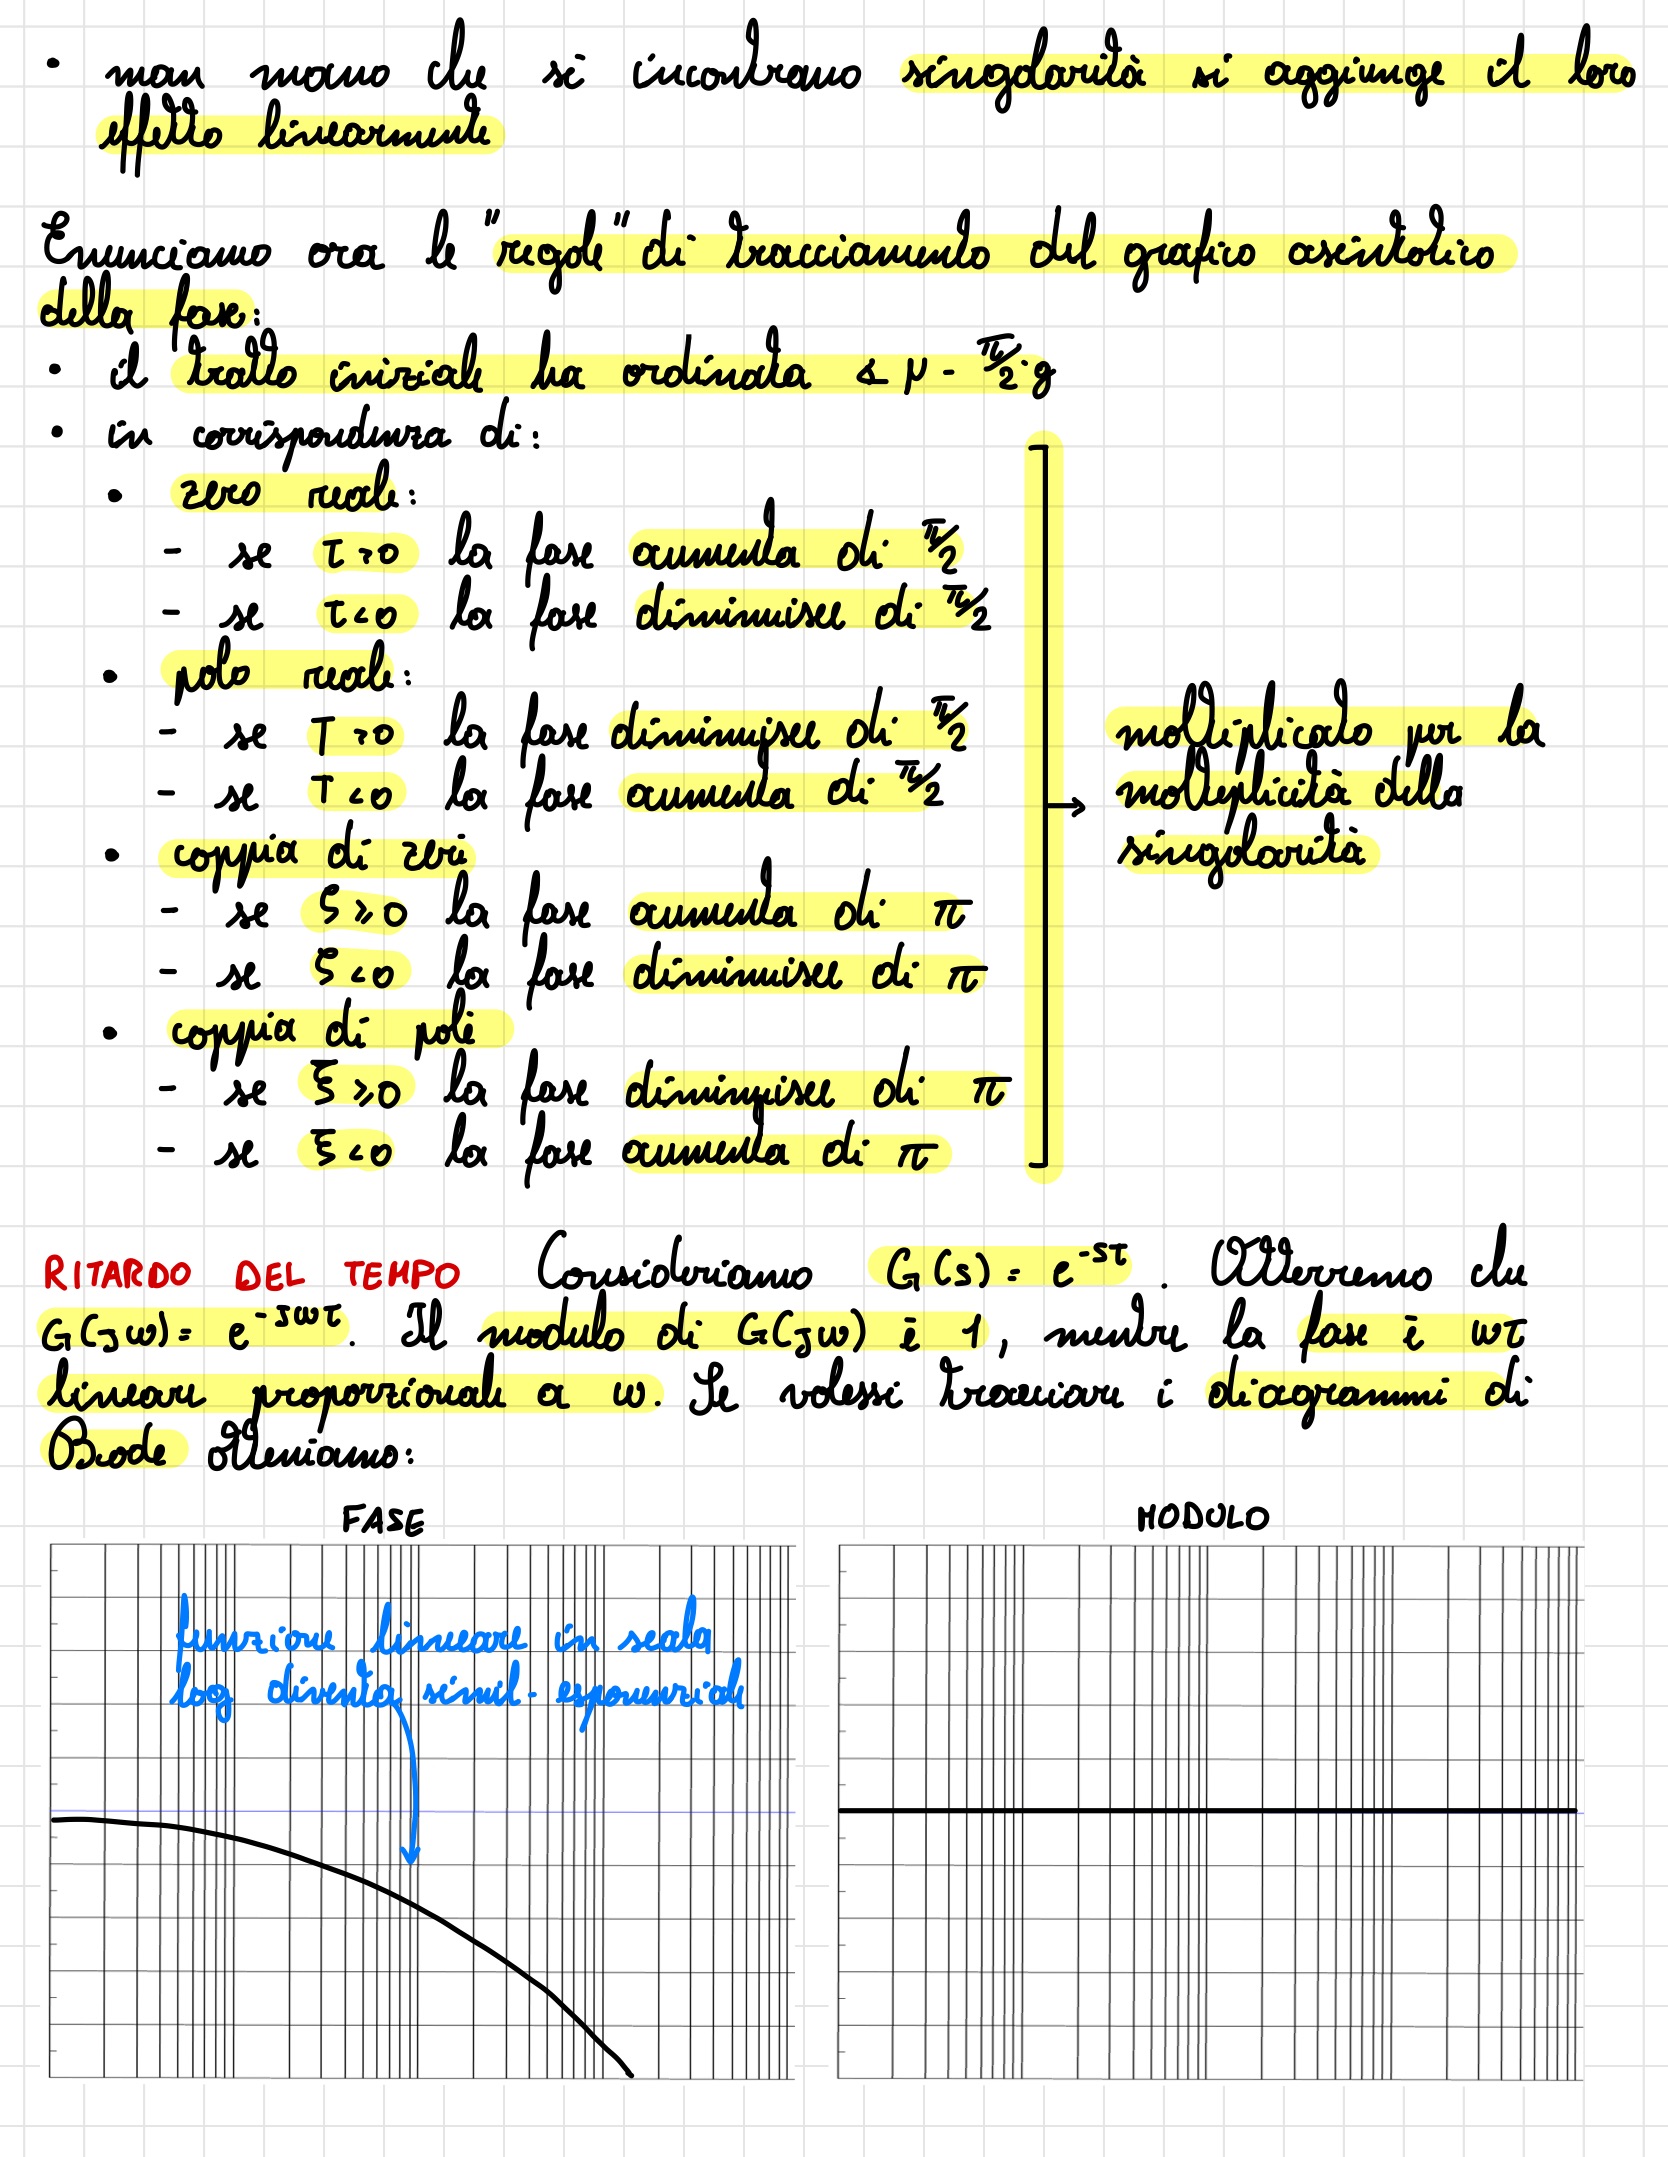 • man mano che si incontrano singolarità si aggiunge il loro
effetto linearmente
Enunciamo ora le "regole" di tracciamento del grafico asintotico
della fase:
• il tratto iniziale ha ordinata ∡ μ - π/2·g
• in corrispondenza di:
• zero reale:
- se τ>0 la fase aumenta di π/2
- se τ<0 la fase diminuisce di π/2
• polo reale:
- se T>0 la fase diminuisce di π/2
- se T<0 la fase aumenta di π/2
• coppia di zeri
- se ζ⩾0 la fase aumenta di π
- se ζ<0 la fase diminuisce di π
• coppia di poli
- se ξ⩾0 la fase diminuisce di π
- se ξ<0 la fase aumenta di π
→ moltiplicato per la
molteplicità della
singolarità
RITARDO DEL TEMPO Consideriamo G(s) = e^-sτ. Otterremo che
G(jω) = e^-jωτ. Il modulo di G(jω) è 1, mentre la fase è ωτ
lineare proporzionale a ω. Se volessi tracciare i diagrammi di
Bode otteniamo:
FASE
funzione lineare in scala
log diventa simil-esponenziale
MODULO